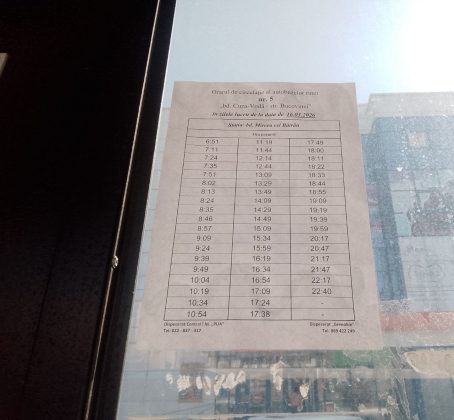 Orarul de circulație al autobuzelor rutei
nr. 5
„bd. Cuza-Vodă - str. Bucovinei"
În zilele lucru de la data de 16.03.2026
Stația: bd. Mircea cel Bătrân
6:51 11:19 17:49
7:11 11:44 18:00
7:24 12:14 18:11
7:35 12:44 18:22
7:51 13:09 18:33
8:02 13:29 18:44
8:13 13:49 18:55
8:24 14:09 19:09
8:35 14:29 19:19
8:46 14:49 19:39
8:57 15:09 19:59
9:09 15:34 20:17
9:24 15:59 20:47
9:39 16:19 21:17
9:49 16:34 21:47
10:04 16:54 22:17
10:19 17:09 22:40
10:34 17:24
10:54 17:38 -
Dispecerat Central: Dispecerat